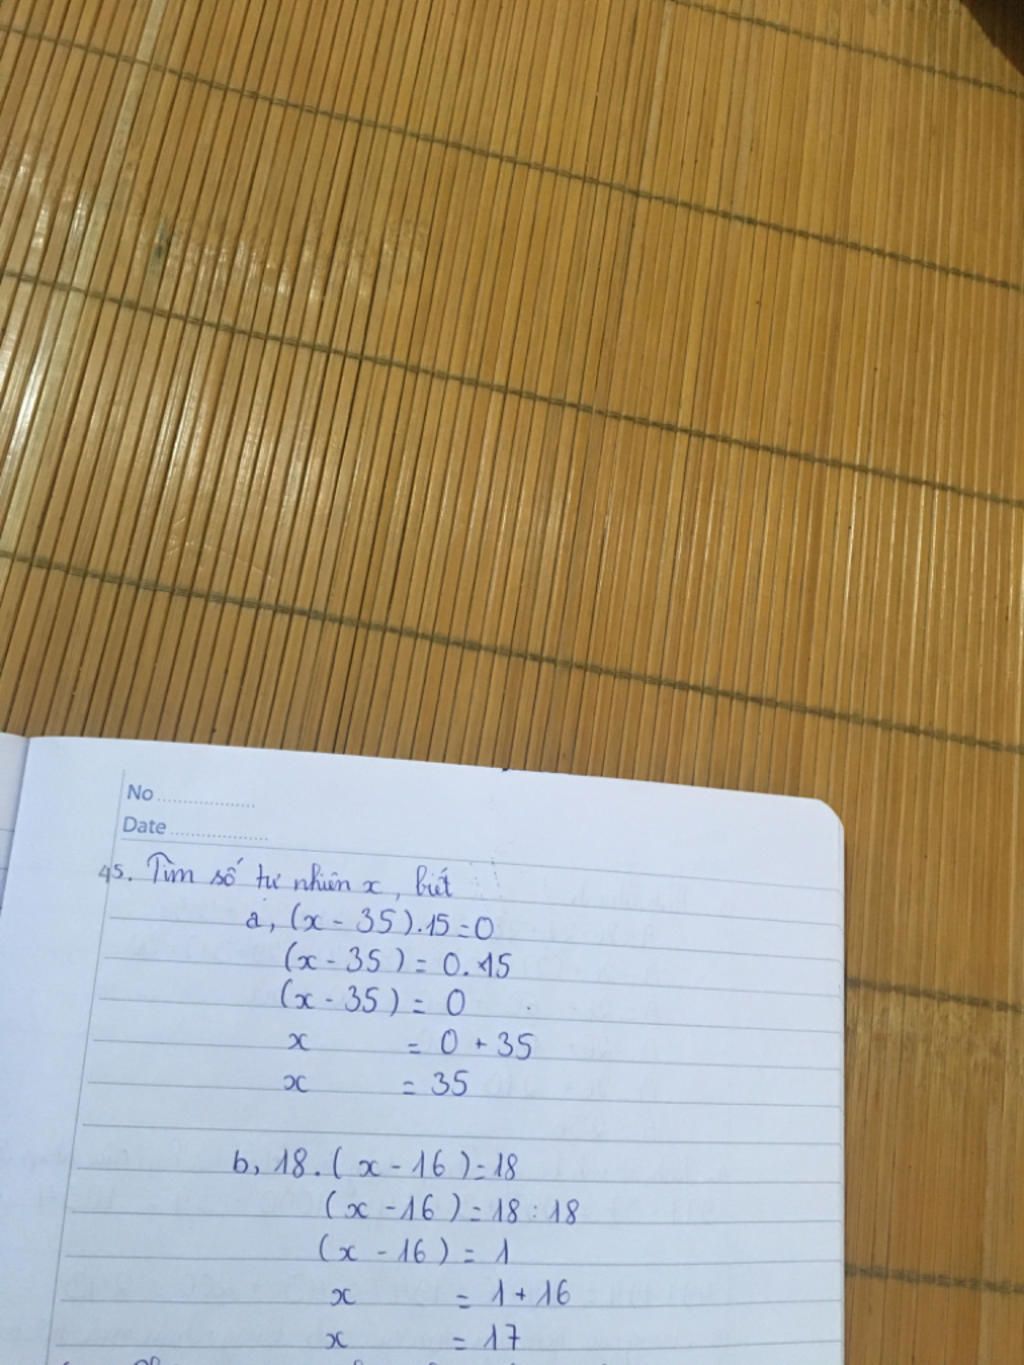 No
Date
45. Tìm số tự nhiên x, biết
a, (x - 35).15=0
(x - 35) = 0.15
(x - 35) = 0
x = 0 + 35
x = 35
b, 18.(x - 16)=18
(x - 16) = 18 : 18
(x - 16) = 1
x = 1 + 16
x = 17